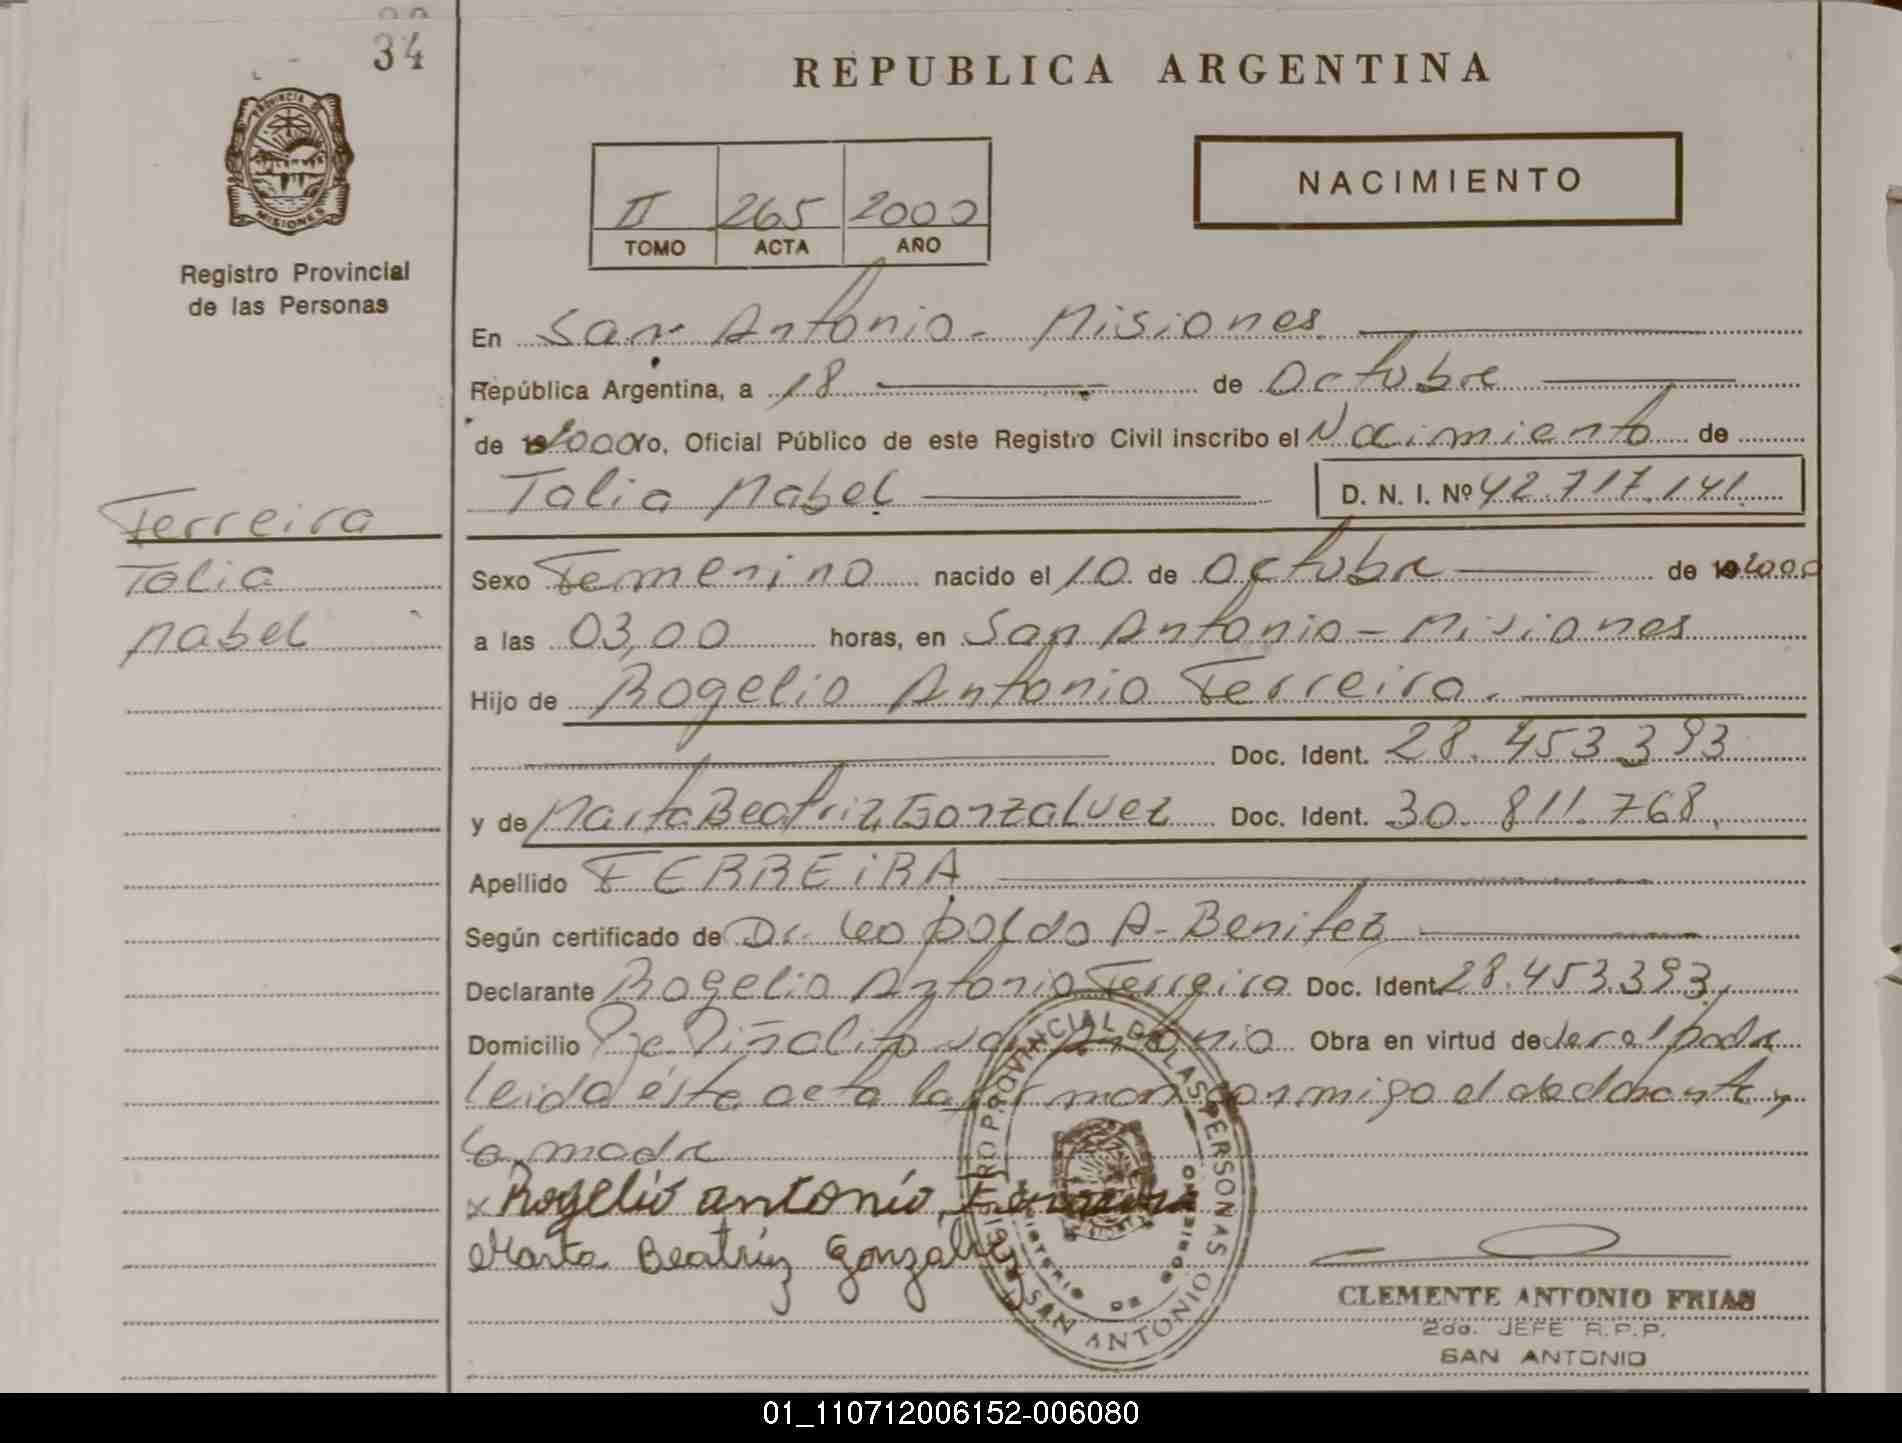 34
REPUBLICA ARGENTINA
PROVINCIA DE
MISIONES
Registro Provincial
de las Personas
II 265 2000
TOMO ACTA AÑO
NACIMIENTO
En San Antonio - Misiones
República Argentina, a 18 de Octubre
de 2000 yo, Oficial Público de este Registro Civil inscribo el Nacimiento de
Talia Mabel D. N. I. Nº 42.717.141
Ferreira
Talia
Mabel
Sexo Femenino nacido el 10 de Octubre de 2000
a las 03,00 horas, en San Antonio - Misiones
Hijo de Rogelio Antonio Ferreira.
Doc. Ident. 28.453.393
y de Marta Beatriz Gonzalvez Doc. Ident. 30.811.768
Apellido FERREIRA
Según certificado de Dr. Leopoldo A. Benitez
Declarante Rogelio Antonio Ferreira Doc. Ident. 28.453.393
Domicilio Pje Piñalito San Antonio Obra en virtud de ser el padre
leida éste acta la firman conmigo el declarante y
la madre
x Rogelio antonio Ferreira
Marta Beatríz Gonzalvez
REGISTRO PROVINCIAL DE LAS PERSONAS
MINISTERIO DE GOBIERNO
SAN ANTONIO
CLEMENTE ANTONIO FRIAS
2do. JEFE R.P.P.
SAN ANTONIO
01_110712006152-006080